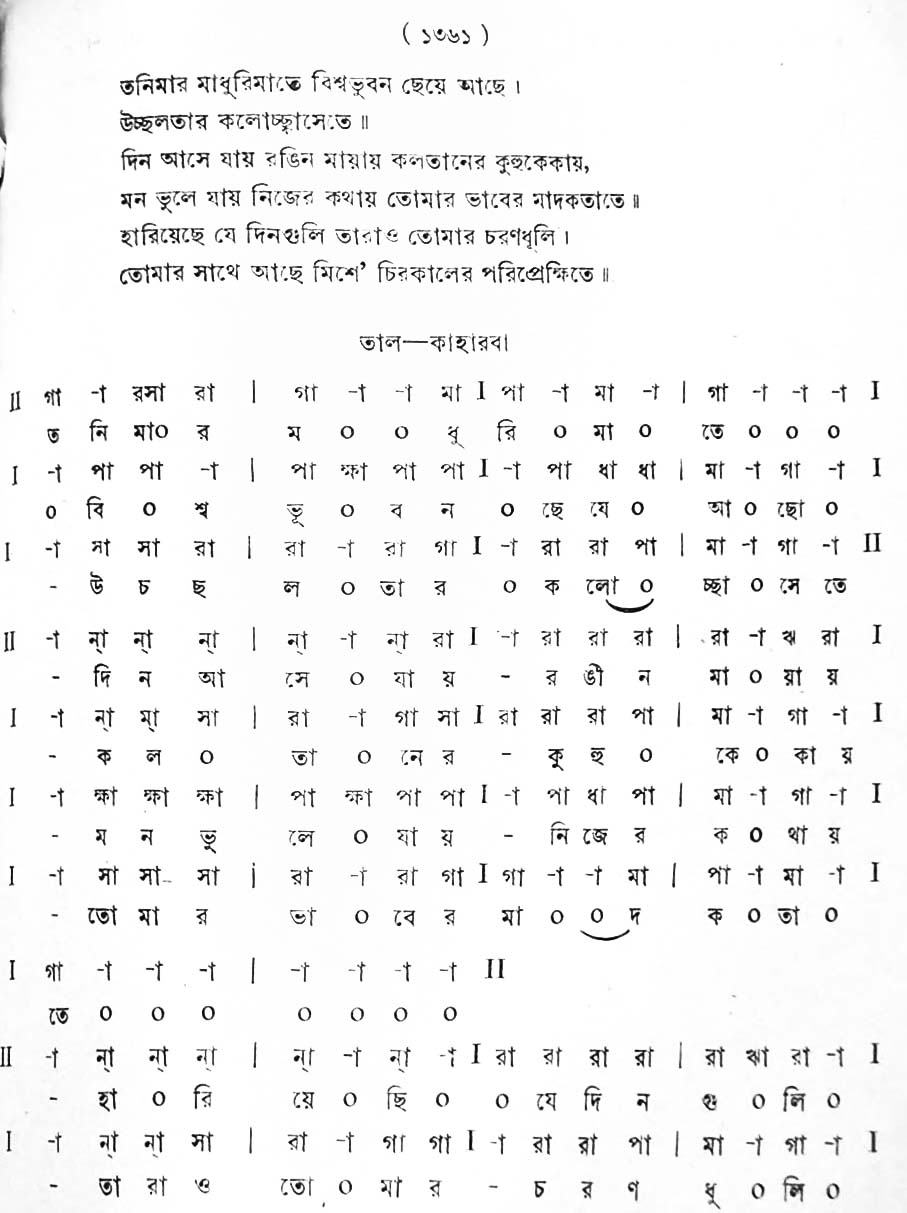 ( ১৩৬১ )
তনিমার মাধুরিমাতে বিশ্বভুবন ছেয়ে আছে ।
উচ্ছলতার কলোচ্ছ্বাসেতে ॥
দিন আসে যায় রঙিন মায়ায় কলতানের কুহুকেকায়,
মন ভুলে যায় নিজের কথায় তোমার ভাবের মাদকতাতে ॥
হারিয়েছে যে দিনগুলি তারাও তোমার চরণধূলি ।
তোমার সাথে আছে মিশে’ চিরকালের পরিপ্রেক্ষিতে ॥
তাল—কাহারবা
II গা -া রসা রা | গা -া -া মা I পা -া মা -া | গা -া -া -া I
ত নি মা০ র ম ০ ০ ধু রি ০ মা ০ তে ০ ০ ০
I -া পা পা -া | পা ক্ষা পা পা I -া পা ধা ধা | মা -া গা -া I
০ বি ০ শ্ব ভূ ০ ব ন ০ ছে যে ০ আ ০ ছো ০
I -া সা সা রা | রা -া রা গা I -া রা রা পা | মা -া গা -া II
- উ চ ছ ল ০ তা র ০ ক লো ০ চ্ছা ০ সে তে
II -া ন্া ন্া ন্া | ন্া -া ন্া রা I -া রা রা রা | রা -া ঋ রা I
- দি ন আ সে ০ যা য় - র ঙী ন মা ০ য়া য়
I -া ন্া ম্া সা | রা -া গা সা I রা রা রা পা | মা -া গা -া I
- ক ল ০ তা ০ নে র - কু হু ০ কে ০ কা য়
I -া ক্ষা ক্ষা ক্ষা | পা ক্ষা পা পা I -া পা ধা পা | মা -া গা -া I
- ম ন ভু লে ০ যা য় - নি জে র ক ০ থা য়
I -া সা সা সা | রা -া রা গা I গা -া -া মা | পা -া মা -া I
- তো মা র ভা ০ বে র মা ০ ০ দ ক ০ তা ০
I গা -া -া -া | -া -া -া -া II
তে ০ ০ ০ ০ ০ ০ ০
II -া ন্া ন্া ন্া | ন্া -া ন্া -া I রা রা রা রা | রা ঋা রা -া I
- হা ০ রি য়ে ০ ছি ০ ০ যে দি ন গু ০ লি ০
I -া ন্া ন্া সা | রা -া গা গা I -া রা রা পা | মা -া গা -া I
- তা রা ও তো ০ মা র - চ র ণ ধূ ০ লি ০